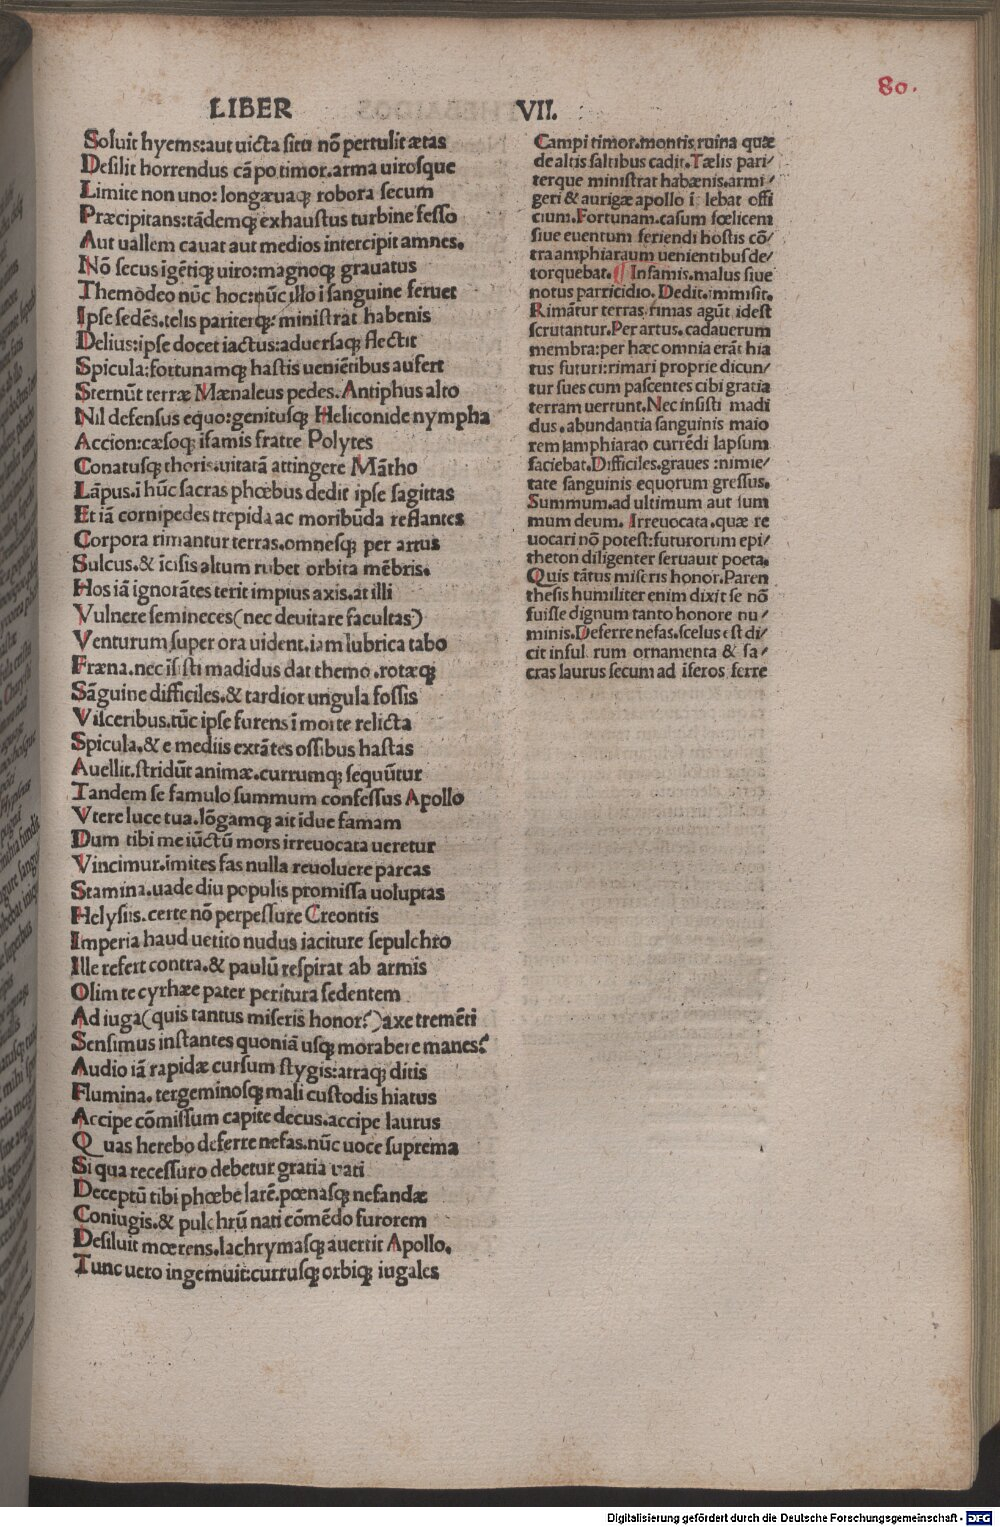 80.
LIBER VII.
Soluit hyems:aut uicta situ nō pertulit ætas
Desilit horrendus cāpo timor.arma uirosque
Limite non uno:longæuaq; robora secum
Præcipitans:tādemq; exhaustus turbine fesso
Aut uallem cauat aut medios intercipit amnes.
Nō secus īgētiq; uiro:magnoq; grauatus
Themōdeo nūc hoc:nūc illo ī sanguine feruet
Ipse sedēs.telis pariterq; ministrat habenis
Delius:ipse docet iactus:aduersaq; flectit
Spicula:fortunamq; hastis ueniētibus aufert
Sternūt terræ Mænaleus pedes.Antiphus alto
Nil defensus equo:genitusq; Heliconide nympha
Accion:cæsoq; īfamis fratre Polytes
Conatusq; thoris:uitatā attingere Māttho
Lāpus.ī hūc sacras phœbus dedit ipse sagittas
Et iā cornipedes trepida ac moribūda reflantes
Corpora rimantur terras.omnesq; per artus
Sulcus.& īcisis altum rubet orbita mēbris.
Hos iā ignorātes terit impius axis.at illi
Vulnere semineces(nec deuitare facultas)
Venturum super ora uident.iam lubrica tabo
Fræna.nec īsisti madidus dat themo.rotæq;
Sāguine difficiles.& tardior ungula fossis
Visceribus.tūc ipse furens ī morte relicta
Spicula.& e mediis extātes ossibus hastas
Auellit.stridūt animæ.currumq; sequūtur
Tandem se famulo summum confessus Apollo
Vtere luce tua.lōgamq; ait idue famam
Dum tibi me iūctū mors irreuocata ueretur
Vincimur.īmites fas nulla reuoluere parcas
Stamina.uade diu populis promissa uoluptas
Helysiis.certe nō perpessure Creontis
Imperia haud uetito nudus iaciture sepulchro
Ille refert contra.& paulū respirat ab armis
Olim te cyrhæe pater peritura sedentem
Ad iuga(quis tantus miseris honor?)axe tremēti
Sensimus instantes quoniā usq; morabere manes?
Audio iā rapidæ cursum stygis:atraq; ditis
Flumina.tergeminosq; mali custodis hiatus
Accipe cōmissum capite decus.accipe laurus
Quas herebo deferre nefas.nūc uoce suprema
Si qua recessuro debetur gratia uati
Deceptū tibi phœbe larē.pœnasq; nefandæ
Coniugis.& pulchrū nati cōmēdo furorem
Desiluit mœrens.lachrymasq; auertit Apollo.
Tunc uero ingemuit:currusq; orbiq; iugales
Campi timor.montis ruina quæ
de altis saltibus cadit.Tælis pari/
terque ministrat habænis.armi/
geri & aurigæ apollo ī lebat offi
cium.Fortunam.casum fœlicem
siue euentum feriendi hostis cō/
tra amphiaraum uenientibus de/
torquebat.¶ Infamis.malus siue
notus parricidio.Dedit.immisit.
Rimātur terras.rimas agūt idest
scrutantur.Per artus.cadauerum
membra:per hæc omnia erāt hia
tus futuri:rimari proprie dicun/
tur sues cum pascentes cibi gratia
terram uertunt.Nec insisti madi
dus.abundantia sanguinis maio
rem lamphiarao currēdi lapsum
faciebat.Difficiles.graues :nimie/
tate sanguinis equorum gressus.
Summum.ad ultimum aut sum
mum deum. Irreuocata.quæ re
uocari nō potest:futurorum epi/
theton diligenter seruauit poeta.
Quis tātus miseris honor.Paren
thesis humiliter enim dixit se nō
fuisse dignum tanto honore nu/
minis.Deferre nefas.scelus est di/
cit insul rum ornamenta & sa/
cras laurus secum ad īferos ferre
Digitalisierung gefördert durch die Deutsche Forschungsgemeinschaft - DFG